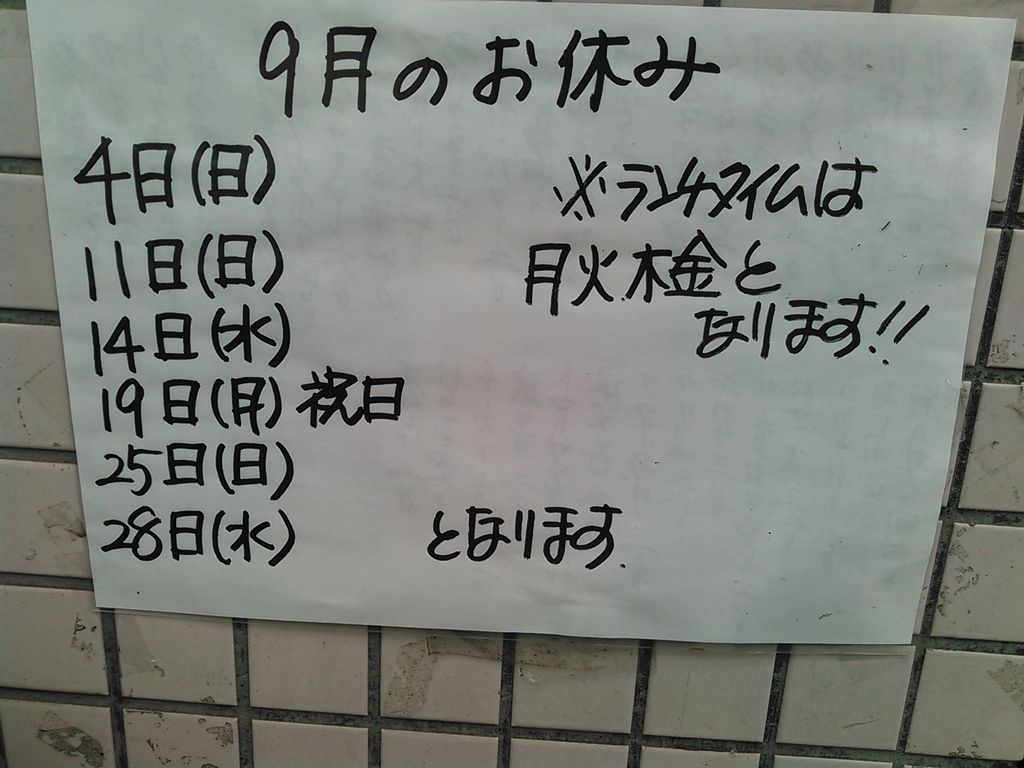 9月のお休み
4日(日)
11日(日)
14日(水)
19日(月)祝日
25日(日)
28日(水) となります.
※ランチタイムは
月火木金と
なります!!